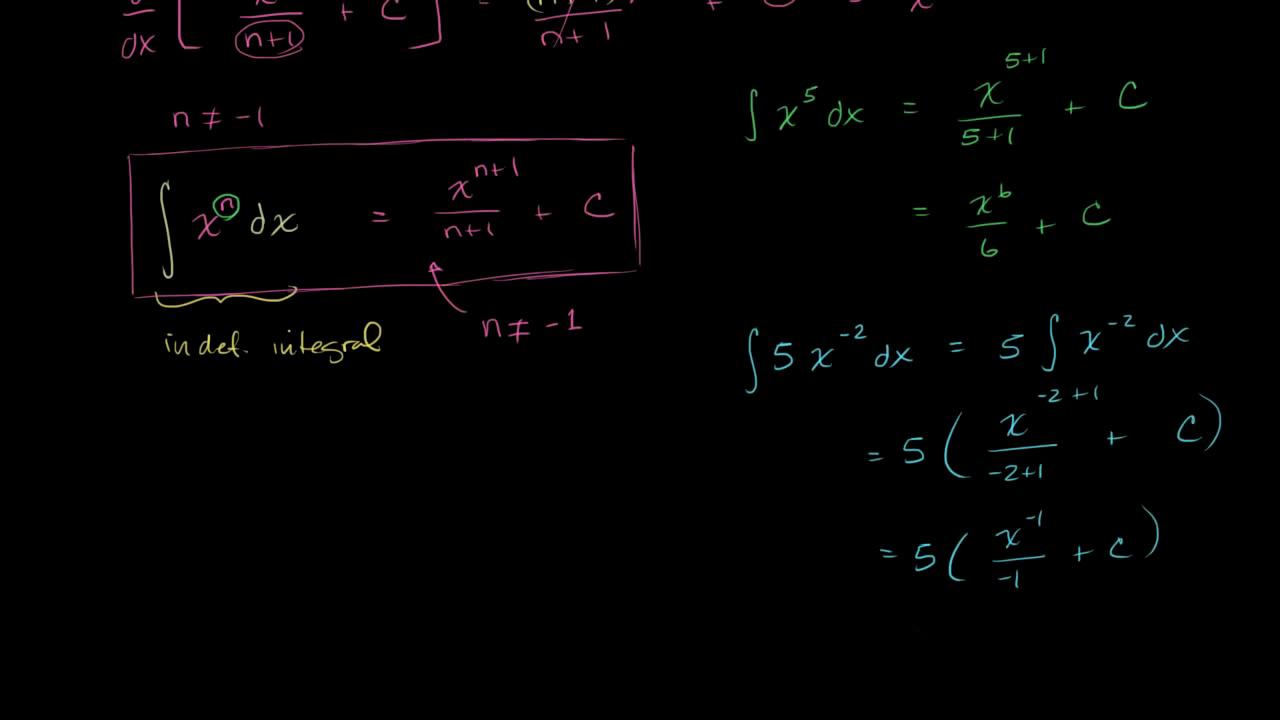 d/dx [ x/(n+1) + C ] = (n+1)/(n+1) + x
n ≠ -1
∫ xⁿ dx = xⁿ⁺¹/(n+1) + C
n ≠ -1
indef. integral
∫ x⁵ dx = x⁵⁺¹/(5+1) + C
= x⁶/6 + C
∫ 5 x⁻² dx = 5 ∫ x⁻² dx
= 5 ( x⁻²⁺¹/(-2+1) + C )
= 5 ( x⁻¹/-1 + C )